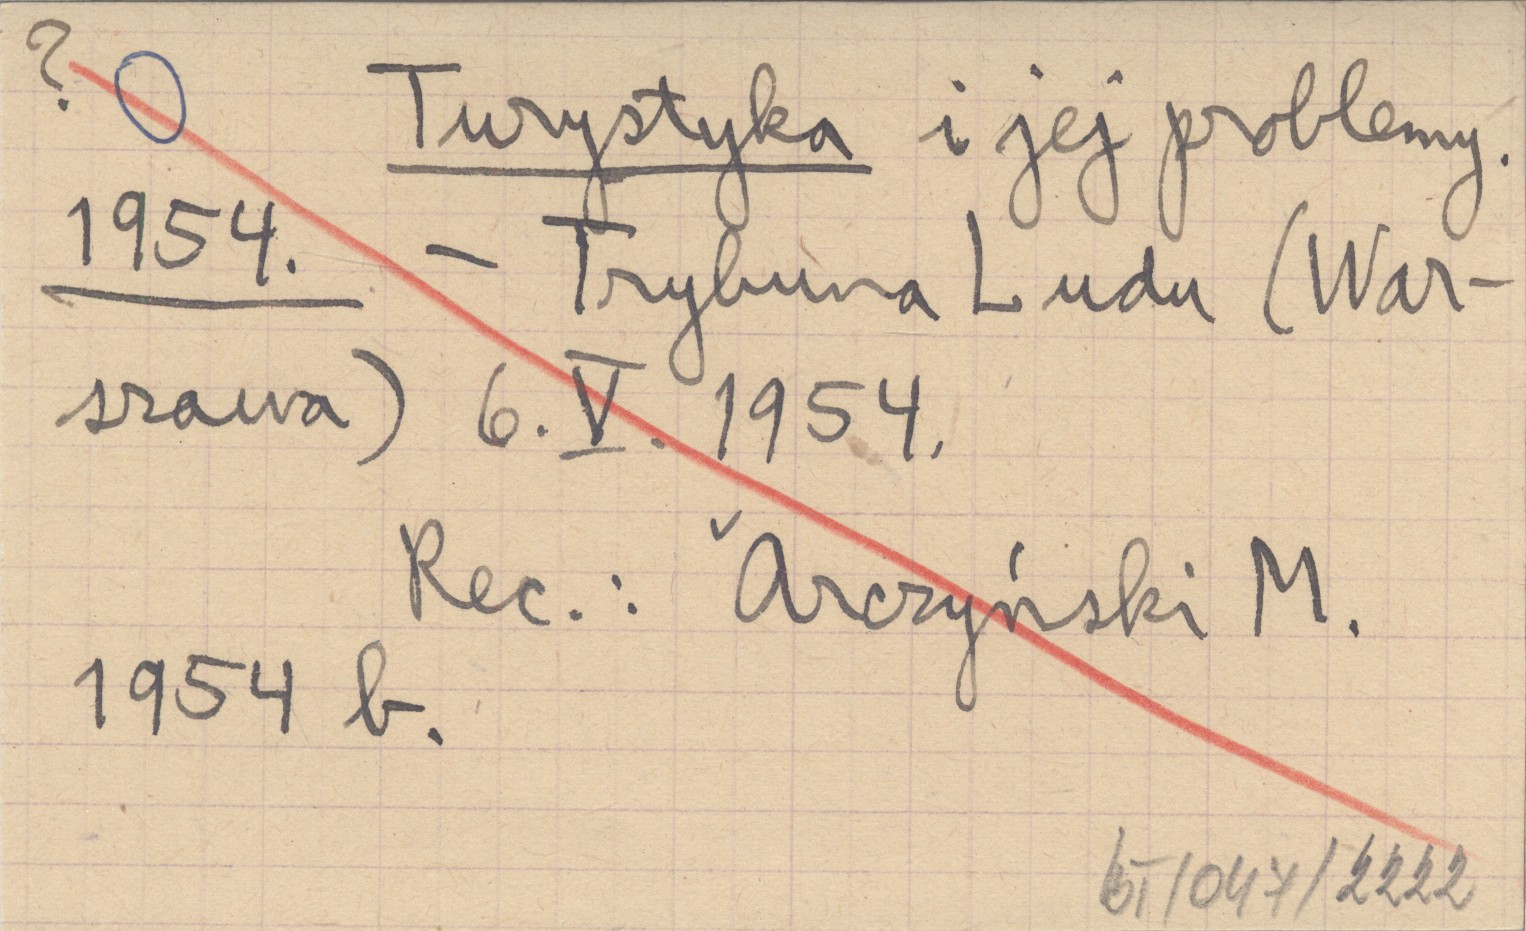 ?
Turystyka i jej problemy.
1954. – Trybuna Ludu (War-
szawa) 6. V. 1954.
Rec.: Arczyński M.
1954 b.
/047/2222